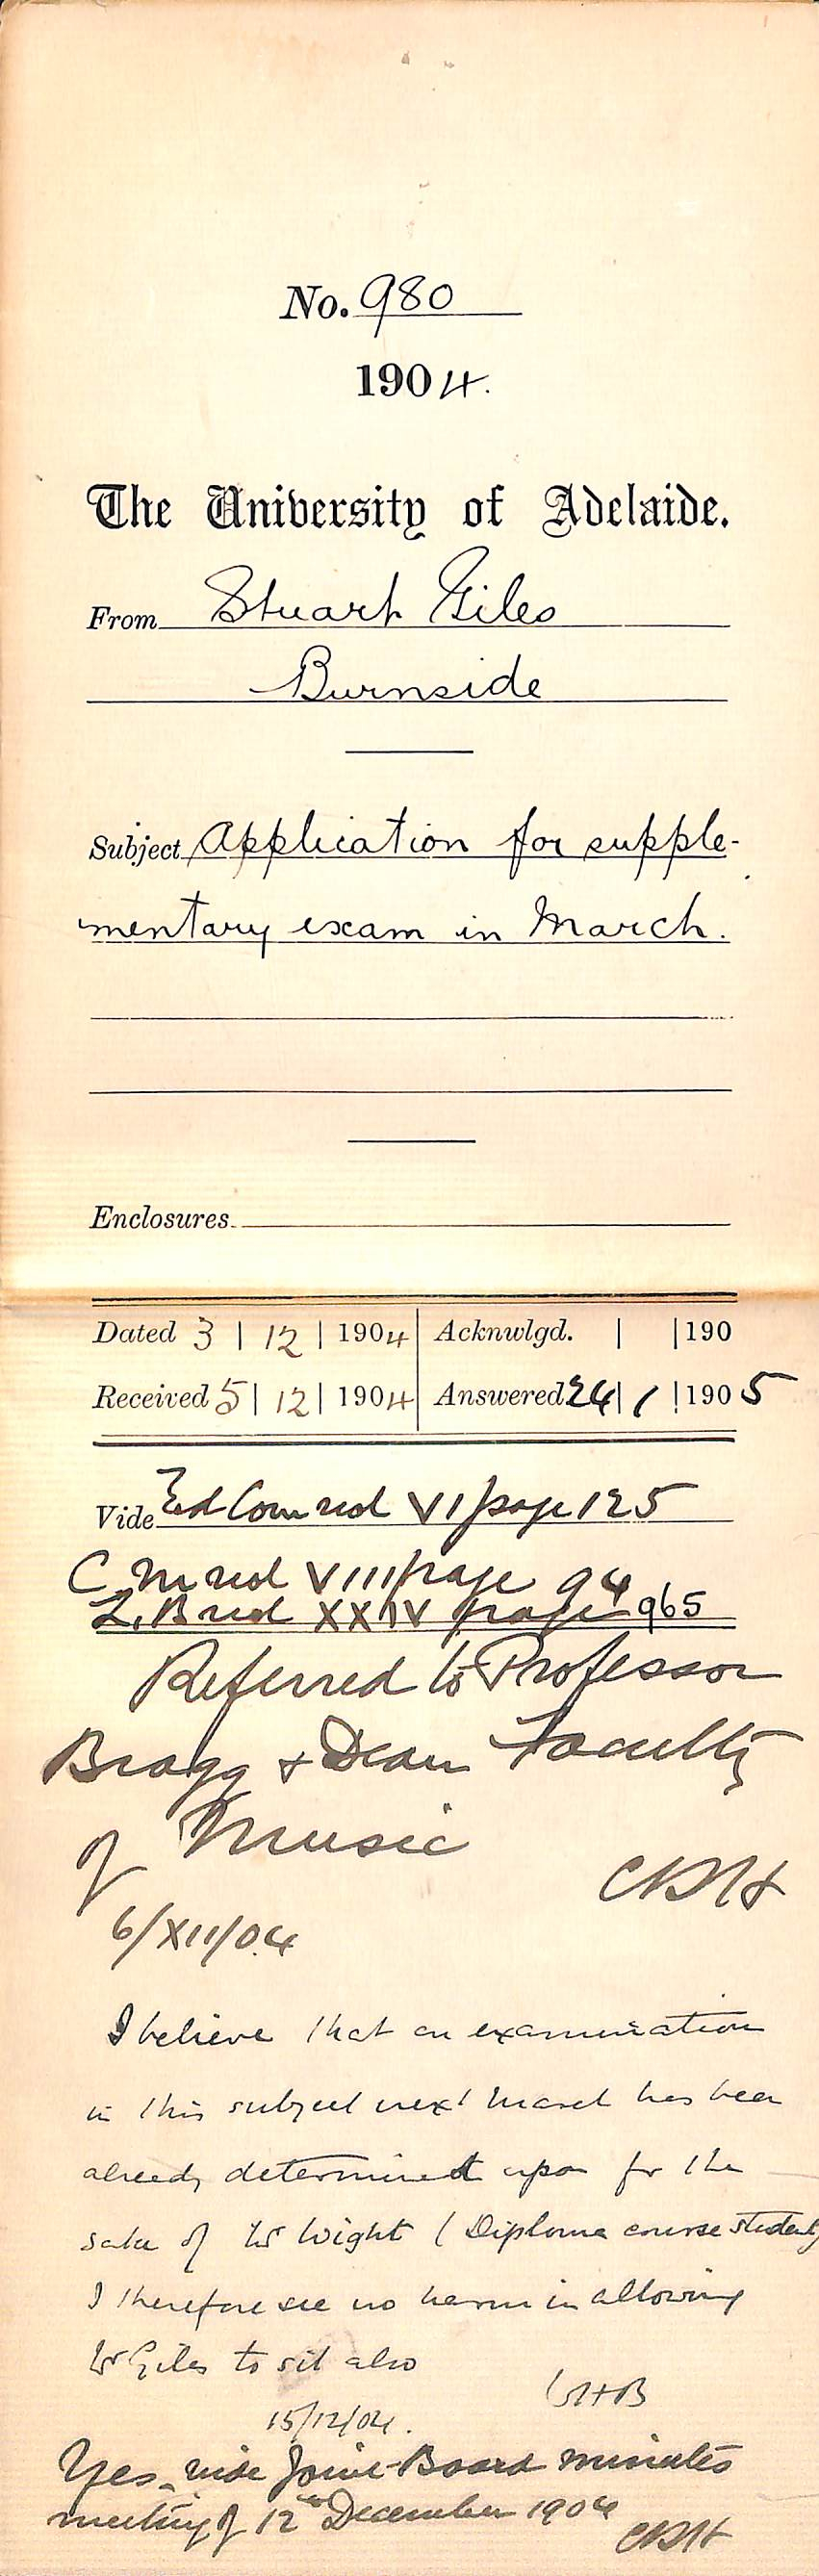 No. 980
1904.
The University of Adelaide.
From Stuart Giles
Burnside
Subject Application for supple-
mentary exam in March.
Enclosures
Dated 3 | 12 | 1904 Acknwlgd. | | 190
Received 5 | 12 | 1904 Answered 24 | 1 | 1905
Vide Ed Com red VI page 125
C M red VIII page 94
L.B red XXIV page 965
Referred to Professor
Bragg & Dean Faculty
of Music
CRH
6/XII/04
I believe that an examination
in this subject next March has been
already determined upon for the
sake of Mr Wight (Diploma course student)
I therefore see no harm in allowing
Mr Giles to sit also
WHB
15/12/04.
Yes, vide Joint Board minutes
meeting of 12th December 1904
CRH